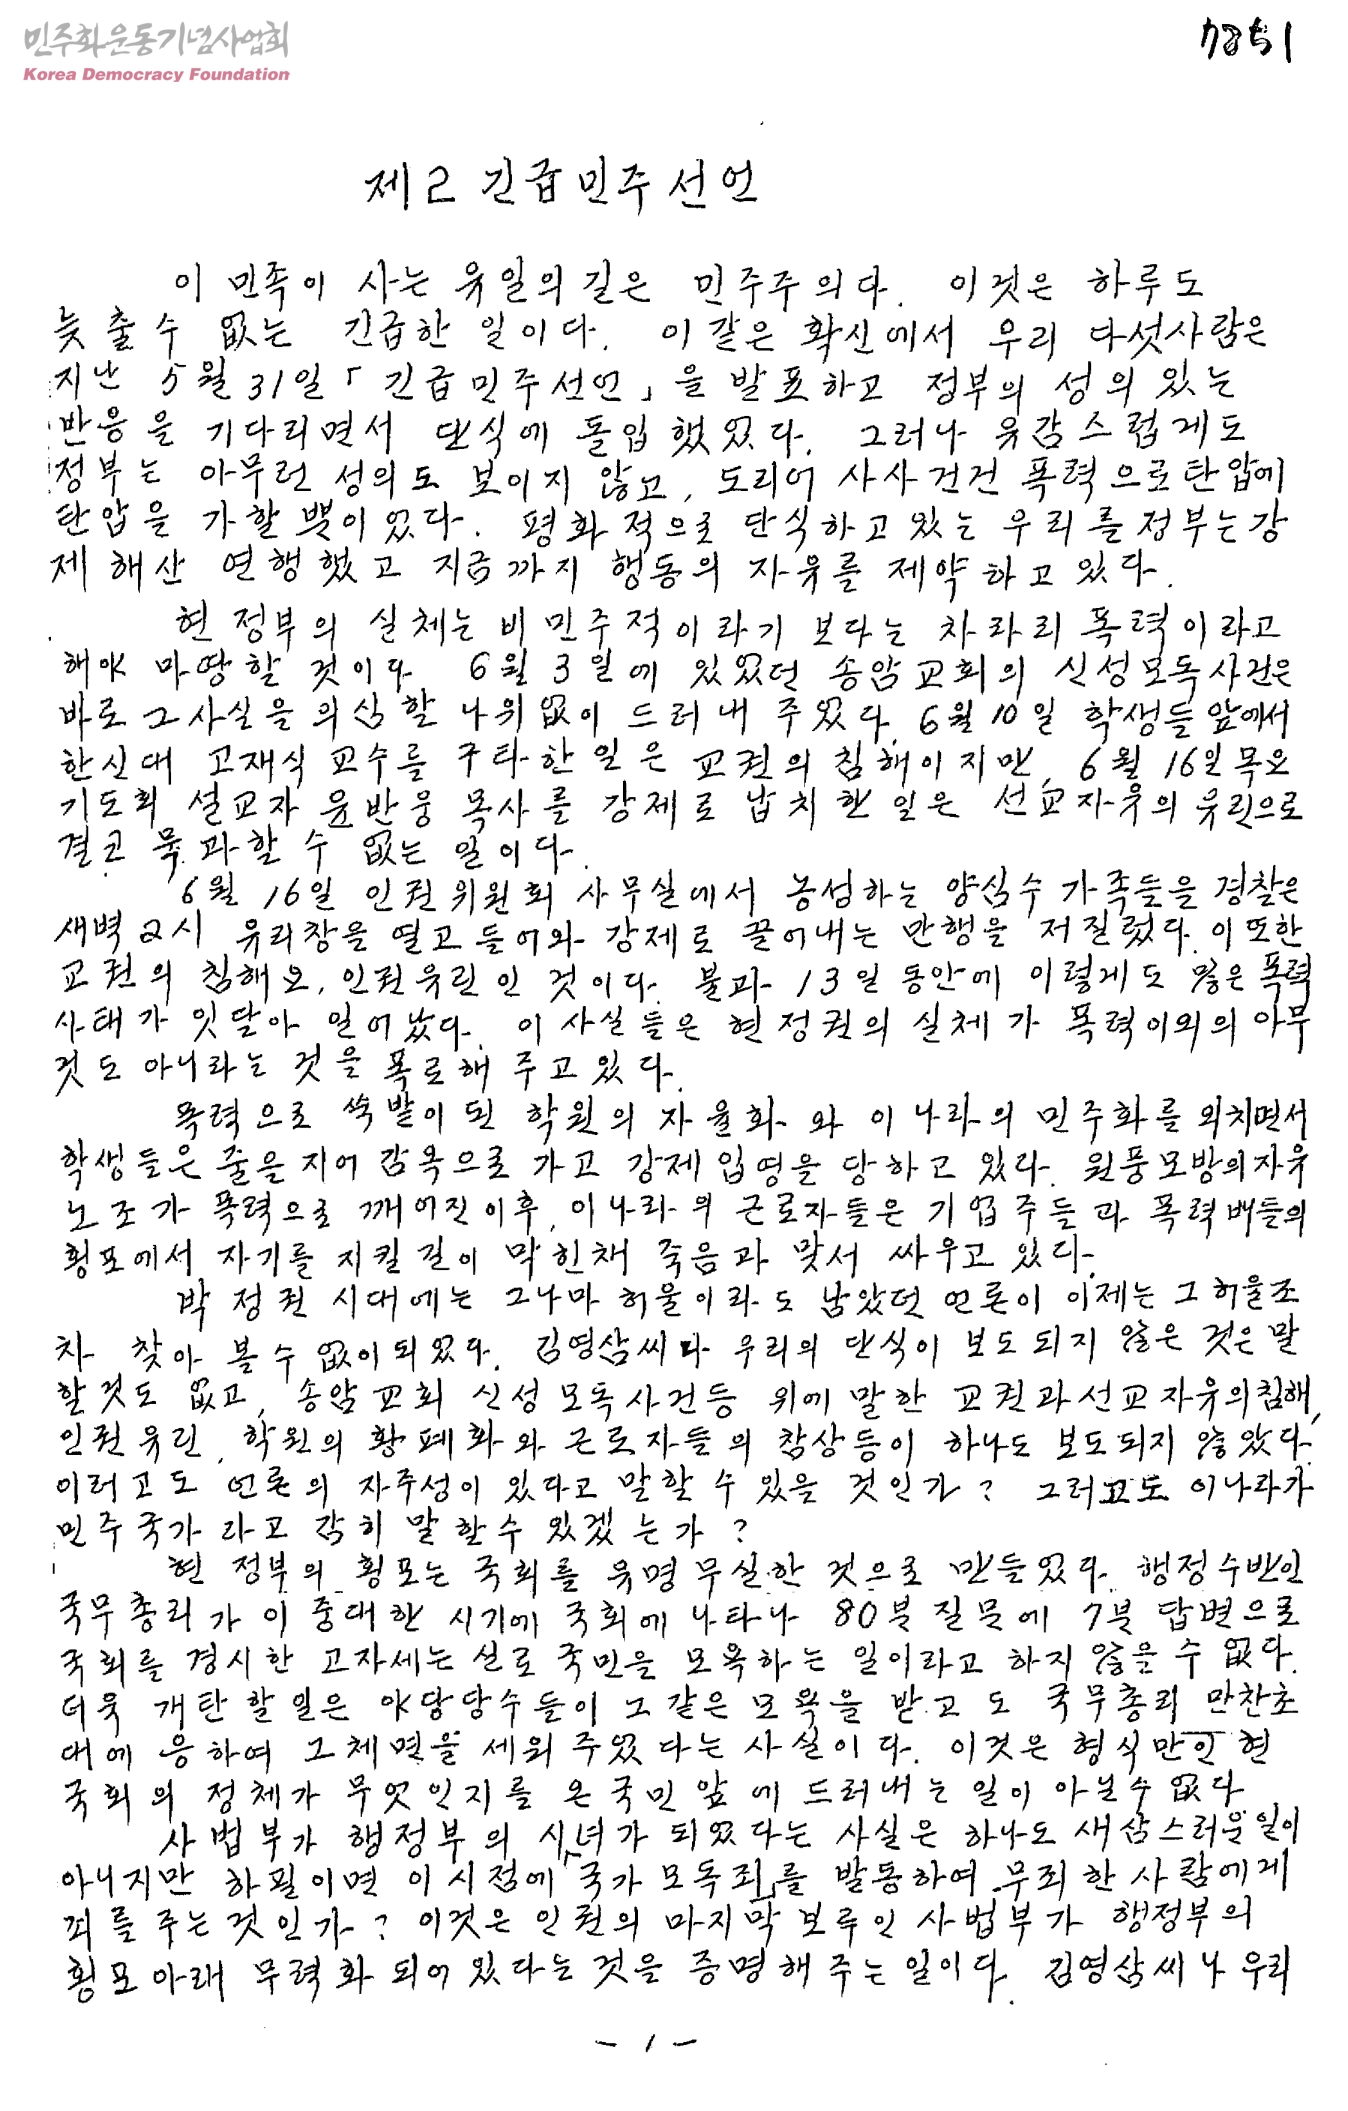 민주화운동기념사업회
Korea Democracy Foundation
제2 긴급민주선언
이 민족이 사는 유일의 길은 민주주의다. 이것은 하루도
늦출수 없는 긴급한 일이다. 이같은 확신에서 우리 다섯사람은
지난 5월 31일「긴급민주선언」을 발표하고 정부의 성의 있는
반응을 기다리면서 단식에 돌입했었다. 그러나 유감스럽게도
정부는 아무런 성의도 보이지 않고, 도리어 사사건건 폭력으로 탄압에
탄압을 가할 뿐이었다. 평화적으로 단식하고 있는 우리를 정부는 강
제 해산 연행했고 지금까지 행동의 자유를 제약하고 있다.
현 정부의 실체는 비민주적이라기 보다는 차라리 폭력이라고
해야 마땅할 것이다 6월 3일에 있었던 송암교회의 신성모독사건은
바로 그사실을 의심할 나위없이 드러내 주었다. 6월 10일 학생들 앞에서
한신대 고재식 교수를 구타한 일은 교권의 침해이지만, 6월 16일 목요
기도회 설교자 윤반웅 목사를 강제로 납치한 일은 선교자유의 유린으로
결코 묵과할 수 없는 일이다.
6월 16일 인권위원회 사무실에서 농성하는 양심수 가족들을 경찰은
새벽 2시 유리창을 떨고 들어와 강제로 끌어내는 만행을 저질렀다. 이 또한
교권의 침해요, 인권유린인 것이다. 불과 13일 동안에 이렇게도 많은 폭력
사태가 잇달아 일어났다. 이 사실들은 현정권의 실체가 폭력이외의 아무
것도 아니라는 것을 폭로해 주고 있다.
폭력으로 쑥밭이 된 학원의 자율화와 이 나라의 민주화를 외치면서
학생들은 줄을 지어 감옥으로 가고 강제입영을 당하고 있다. 원풍모방의 자유
노조가 폭력으로 깨어진 이후, 이나라의 근로자들은 기업주들과 폭력배들의
횡포에서 자기를 지킬 길이 막힌채 죽음과 맞서 싸우고 있다.
박정권 시대에는 그나마 허울이라도 남았던 언론이 이제는 그 허울조
차 찾아 볼수 없이 되었다. 김영삼씨나 우리의 단식이 보도되지 않은 것은 말
할것도 없고, 송암교회 신성모독사건등 위에 말한 교권과 선교자유의 침해,
인권유린, 학원의 황폐화와 근로자들의 참상등이 하나도 보도되지 않았다.
이러고도 언론의 자주성이 있다고 말할 수 있을 것인가? 그러고도 이나라가
민주국가라고 감히 말할수 있겠는가?
현 정부의 횡포는 국회를 유명무실한 것으로 만들었다. 행정수반인
국무총리가 이 중대한 시기에 국회에 나타나 80분 질문에 7분 답변으로
국회를 경시한 고자세는 실로 국민을 모욕하는 일이라고 하지 않을 수 없다.
더욱 개탄할 일은 야당당수들이 그같은 모욕을 받고도 국무총리 만찬초
대에 응하여 그 체면을 세워 주었다는 사실이다. 이것은 형식만인 현
국회의 정체가 무엇인지를 온 국민 앞에 드러내는 일이 아닐수 없다
사법부가 행정부의 시녀가 되었다는 사실은 하나도 새삼스러운 일이
아니지만 하필이면 이 시점에「국가모독죄」를 발동하여 무죄한 사람에게
죄를 주는것인가? 이것은 인권의 마지막 보루인 사법부가 행정부의
횡포아래 무력화 되어 있다는 것을 증명해 주는 일이다. 김영삼씨나 우리
- 1 -